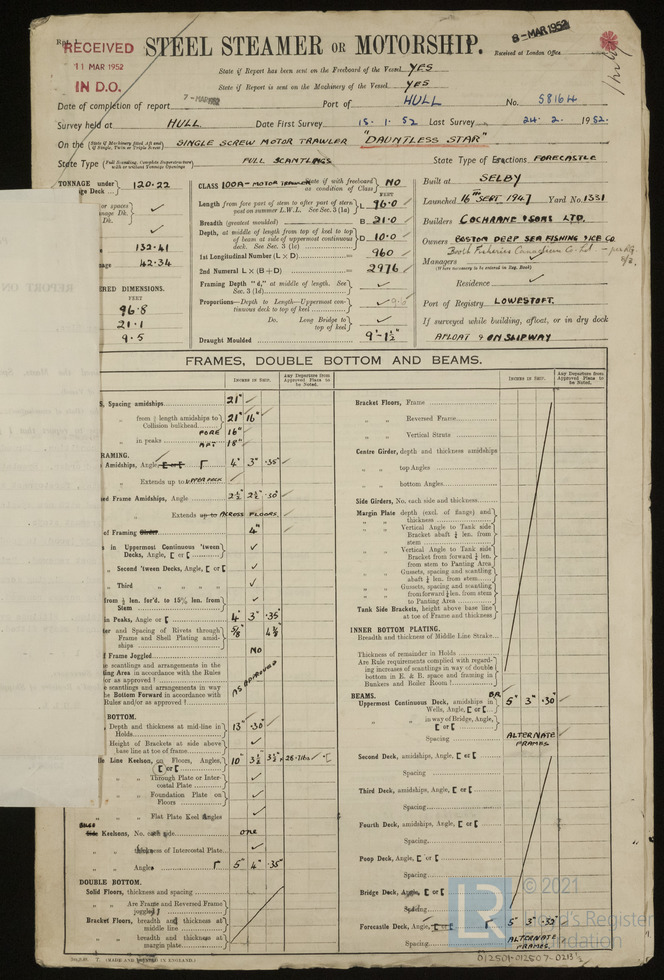 Rpt. 1.
RECEIVED
11 MAR 1952
IN D.O.
STEEL STEAMER OR MOTORSHIP.
8-MAR 1952
Received at London Office
State if Report has been sent on the Freeboard of the Vessel YES
State if Report is sent on the Machinery of the Vessel YES
Date of completion of report 7-MAR 1952 Port of HULL No. 58164
Survey held at HULL. Date First Survey 15. 1. 52 Last Survey 24. 2. 1952.
On the SINGLE SCREW MOTOR TRAWLER "DAUNTLESS STAR"
State Type FULL SCANTLINGS State Type of Erections FORECASTLE
TONNAGE under
ge Deck... 120.22
or spaces
nage Dk.
Dk.
132.41
42.34
RED DIMENSIONS.
FEET
96.8
21.1
9.5
CLASS 100A-MOTOR TRAWLER State if with freeboard as condition of Class NO
FEET
Length from fore part of stem to after part of stern post on summer L.W.L. See Sec. 3 (1a) L 96.0
Breadth (greatest moulded) B 21.0
Depth, at middle of length from top of keel to top of beam at side of uppermost continuous deck. See Sec. 3 (1c) D 10.0
1st Longitudinal Number (L × D) 960
2nd Numeral L × (B + D) 2976
Framing Depth "d," at middle of length. See Sec. 3 (1d)
Proportions—Depth to Length—Uppermost continuous deck to top of keel 9.6
Do. Long Bridge to top of keel
Draught Moulded 9'-1½"
Built at SELBY
Launched 16TH SEPT 1947 Yard No. 1331
Builders COCHRANE & SONS LTD.
Owners BOSTON DEEP SEA FISHING & ICE CO
Managers
(Where necessary to be entered in Reg. Book)
Residence
Port of Registry LOWESTOFT.
If surveyed while building, afloat, or in dry dock
AFLOAT & ON SLIPWAY
FRAMES, DOUBLE BOTTOM AND BEAMS.
INCHES IN SHIP.
Any Departure from Approved Plans to be Noted.
INCHES IN SHIP.
Any Departure from Approved Plans to be Noted.
S, Spacing amidships 21"
from ½ length amidships to Collision bulkhead 21" 16"
FORE 16"
in peaks AFT 18"
RAMING.
Amidships, Angle, 4" 3" .35"
Extends up to UPPER DECK
ed Frame Amidships, Angle 2½" 2½" .30"
Extends up to ACROSS FLOORS
of Framing Girder 4"
s in Uppermost Continuous 'tween Decks, Angle, [ or [
Second 'tween Decks, Angle, [ or [
Third
from ½ len. for'd. to 15% len. from Stem
in Peaks, Angle or [ 4" 3" .35"
ter and Spacing of Rivets through Frame and Shell Plating amidships 5/8"
f Frame Joggled NO
e scantlings and arrangements in the ting Area in accordance with the Rules or/as approved!
e scantlings and arrangements in way the Bottom Forward in accordance with Rules and/or approved!
AS APPROVED
BOTTOM.
Depth and thickness at mid-line in Holds 13" .30"
Height of Brackets at side above base line at toe of frame
le Line Keelson, on Floors, Angles [ or [ 10" 3½" 3½"
Through Plate or Intercostal Plate
Foundation Plate on Floors
Flat Plate Keel Angles
Side Keelsons, No. each side one
thickness of Intercostal Plate
Angles 5" 4" .35"
DOUBLE BOTTOM.
Solid Floors, thickness and spacing
Are Frame and Reversed Frame joggled!
Bracket Floors, breadth and thickness at middle line
breadth and thickness at margin plate
Bracket Floors, Frame
Reversed Frame
Vertical Struts
Centre Girder, depth and thickness amidships
top Angles
bottom Angles
Side Girders, No. each side and thickness
Margin Plate depth (excl. of flange) and thickness
Vertical Angle to Tank side Bracket abaft ¼ len. from stem
Vertical Angle to Tank side Bracket from forward ¼ len. from stem to Panting Area
Gussets, spacing and scantling abaft ¼ len. from stem
Gussets, spacing and scantling from forward ¼ len. from stem to Panting Area
Tank Side Brackets, height above base line at toe of Frame and thickness
INNER BOTTOM PLATING.
Breadth and thickness of Middle Line Strake
Thickness of remainder in Holds
Are Rule requirements complied with regarding increases of scantlings in way of double bottom in E. & B. space and framing in Bunkers and Boiler Room?
BEAMS.
Uppermost Continuous Deck, amidships in Wells, Angle, [ or [ 5" 3" .30"
in way of Bridge, Angle, [ or [
Spacing ALTERNATE FRAMES
Second Deck, amidships, Angle, [ or [
Spacing
Third Deck, amidships, Angle, [ or [
Spacing
Fourth Deck, amidships, Angle, [ or [
Spacing
Poop Deck, Angle, [ or [
Spacing
Bridge Deck, Angle, [ or [
Spacing
Forecastle Deck, Angle, [ or [ 5" 3" .32"
Spacing ALTERNATE FRAMES.
(MADE AND PRINTED IN ENGLAND.)
LR
© 2021
Lloyd's Register
Foundation